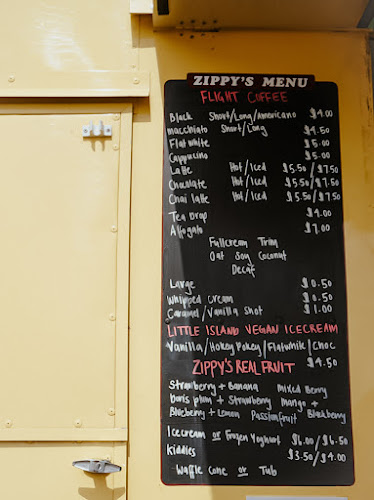 ZIPPY'S MENU
FLIGHT COFFEE
Black Short/Long/Americano $4.00
macchiato Short/Long $4.50
Flat white $5.00
Cappucino $5.00
Latte Hot/Iced $5.50/$7.50
Chocolate Hot/Iced $5.50/$7.50
Chai latte Hot/Iced $5.50/$7.50
Tea Drop $4.00
Affogato $7.00
Fullcream Trim
Oat Soy Coconut
Decaf
Large $0.50
Whipped cream $0.50
Caramel/Vanilla Shot $1.00
LITTLE ISLAND VEGAN ICECREAM
Vanilla/Hokey Pokey/Flatwhite/Choc
ZIPPY'S REAL FRUIT $4.50
Strawberry + Banana Mixed Berry
Doris plum + Strawberry Mango +
Blueberry + Lemon Passionfruit Blackberry
Icecream or Frozen Yoghurt $6.00/$6.50
Kiddies $3.50/$4.00
Waffle Cone or Tub